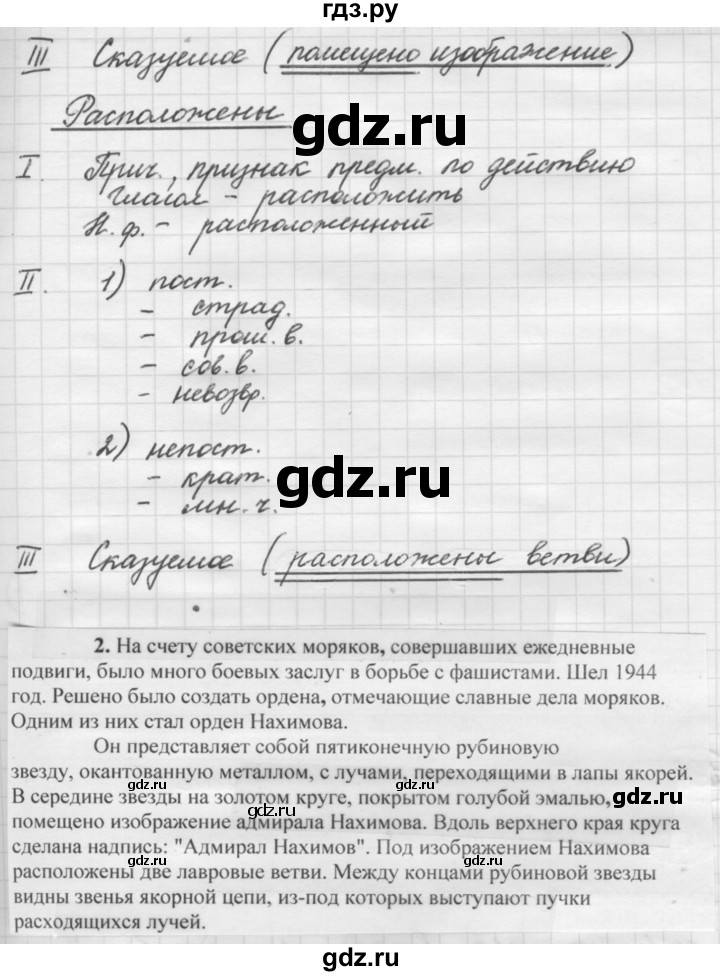 гдз.ру
III Сказуемое (помещено изображение)
Расположены
gdz.ru
I. Прич., признак предм. по действию
Глагол - расположить
Н.ф. - расположенный
II. 1) пост.
- страд.
- прош.в.
- сов.в.
- невозвр.
2) непост.
- крат.
gdz.ru
- мн.ч.
III Сказуемое (расположены ветви)
2. На счету советских моряков, совершавших ежедневные
подвиги, было много боевых заслуг в борьбе с фашистами. Шел 1944
год. Решено было создать ордена, отмечающие славные дела моряков.
Одним из них стал орден Нахимова.
Он представляет собой пятиконечную рубиновую
звезду, окантованную металлом, с лучами, переходящими в лапы якорей.
В середине звезды на золотом круге, покрытом голубой эмалью,
gdz.ru
помещено изображение адмирала Нахимова. Вдоль верхнего края круга
сделана надпись: "Адмирал Нахимов". Под изображением Нахимова
расположены две лавровые ветви. Между концами рубиновой звезды
видны звенья якорной цепи, из-под которых выступают пучки
расходящихся лучей.
gdz.ru